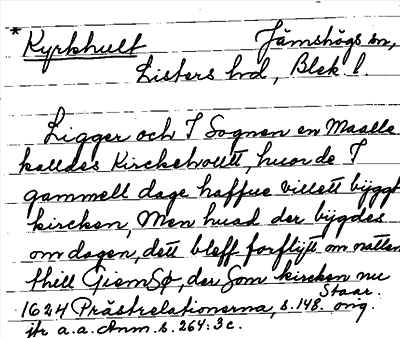 * Kyrkhult Jämshögs sn,
Listers hd, Blek. l.
Ligger och I Sognen en Maalle
kalldes Kircketvolltt, huor de I
gammell dage haffue villett byggt
kircken, Men huad der bygdes
om dagen, dett bleff forflytt om natten
thill GiemSø, der Som kircken nu
Staar.
1624 Prästrelationerna, s. 148. orig.
jfr a.a. Anm. s. 264: 3 c.